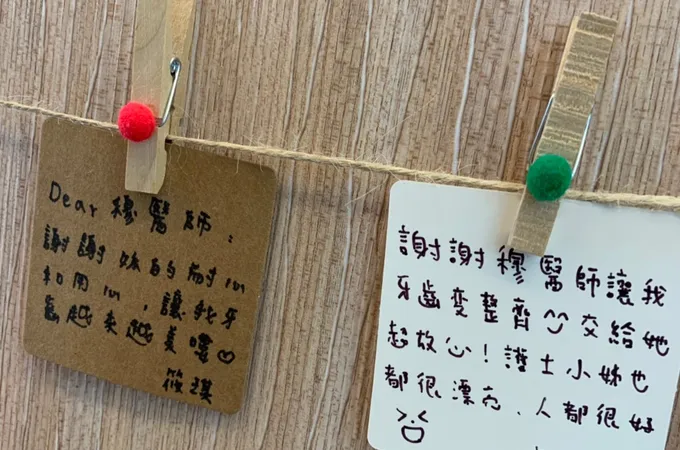 Dear 穆醫師：
謝謝妳的耐心
和用心，讓我牙
齒越來越美嘿♡
筱琪
謝謝穆醫師讓我
牙齒變整齊 交給她
超放心！護士小姊也
都很漂亮、人都很好